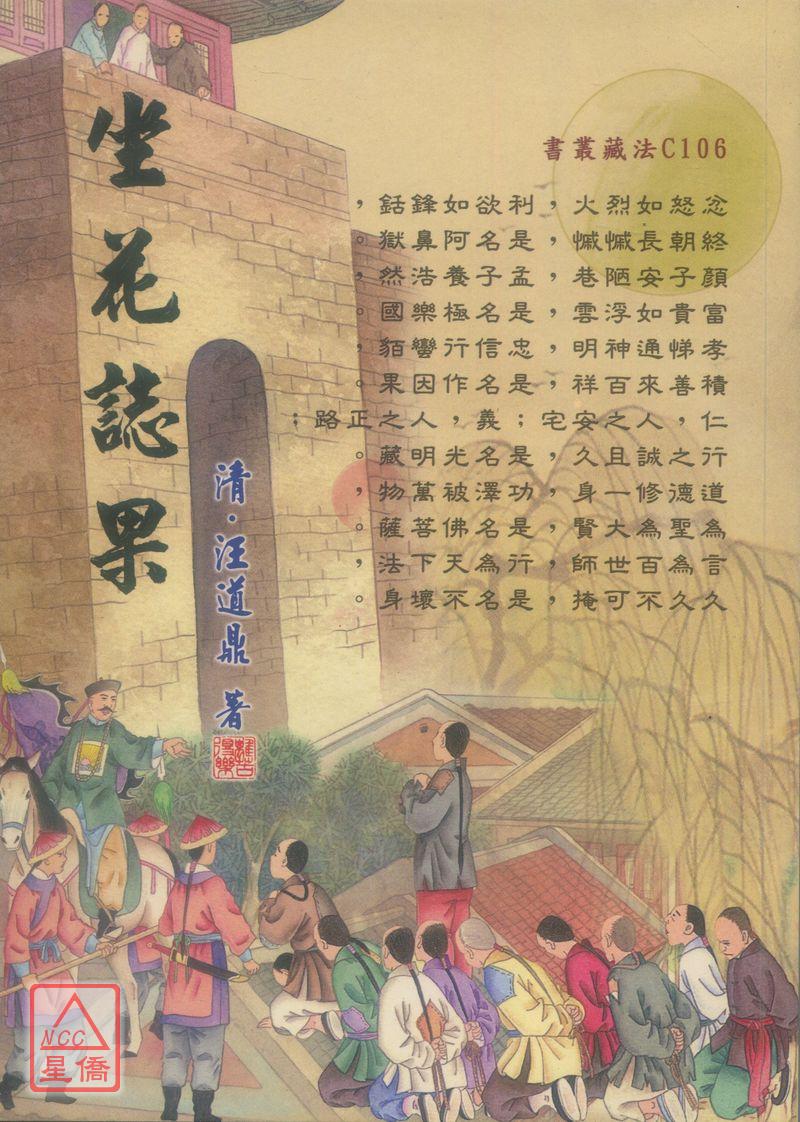 坐花誌果
清·汪道鼎 著
C106法藏叢書
忿怒如烈火，利欲如鋒銛，
終朝長慽慽，是名阿鼻獄。
顏子安陋巷，孟子養浩然，
富貴如浮雲，是名極樂國。
孝悌通神明，忠信行蠻貊，
積善來百祥，是名作因果。
仁，人之安宅；義，人之正路；
行之誠且久，是名光明藏。
道德修一身，功澤被萬物，
為聖為大賢，是名佛菩薩。
言為百世師，行為天下法，
久久不可掩，是名不壞身。
NCC
星僑